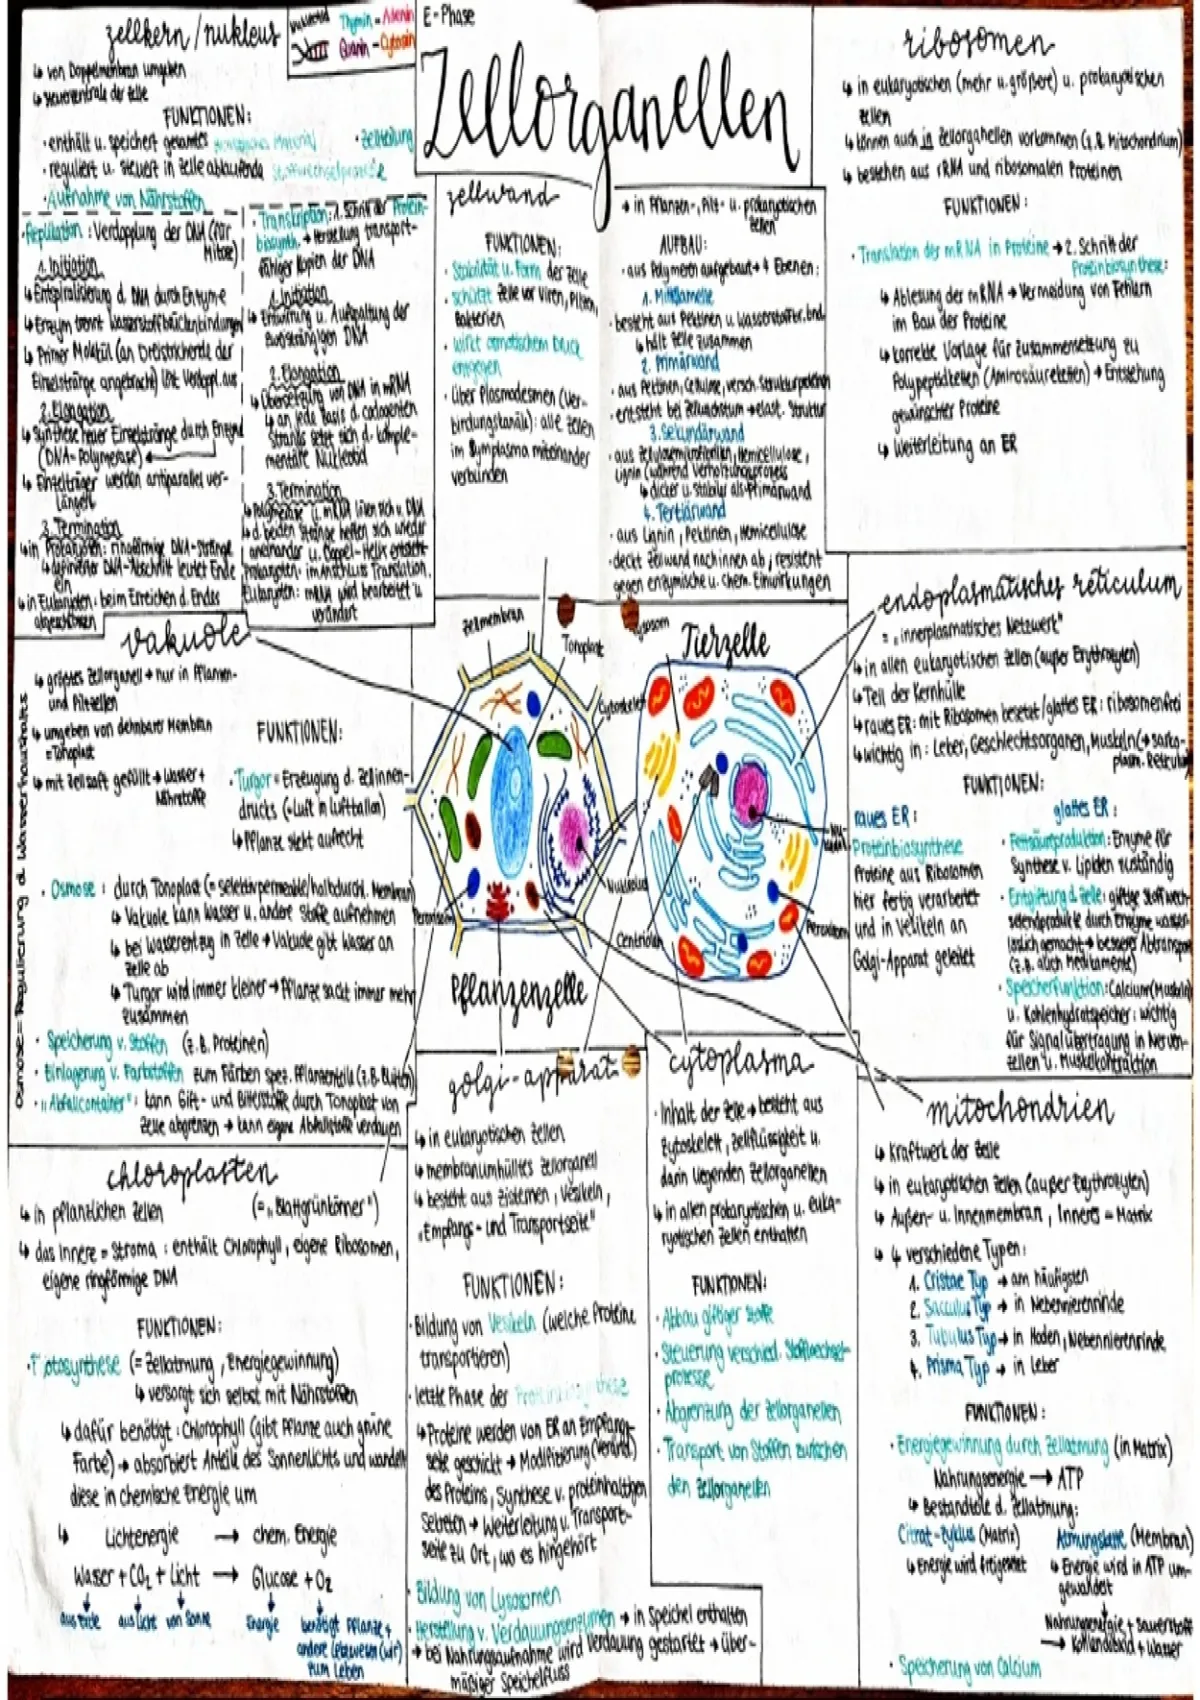 zellkern / nukleus
↳ von Doppelmembran umgeben
↳ Steuerzentrale der Zelle
FUNKTIONEN:
· enthält u. speichert gesamtes genetisches Material
· Zellteilung
· reguliert u. steuert in Zelle ablaufende Stoffwechselprozesse
· Aufnahme von Nährstoffen
Thymin - Adenin
Guanin - Cytosin
E-Phase
Zellorganellen
· Replikation: Verdopplung der DNA (für
Mitose)
1. Initiation
↳ Entspiralisierung d. DNA durch Enzyme
↳ Enzym trennt Wasserstoffbrückenbindungen
↳ Primer Molekül (an Dreistrichende der
Einzelstränge angebracht) löst Verdoppl. aus
2. Elongation
↳ Synthese neuer Einzelstränge durch Enzym
(DNA-Polymerase)
↳ Einzelträger werden antiparallel ver-
längert
3. Termination
↳ in Prokaryoten: ringförmige DNA-Stränge
↳ definierter DNA-Abschnitt leutet Ende
ein
↳ in Eukaryoten: beim Erreichen d. Endes
abgeschlossen
· Transkription: 1. Schritt der Protein-
biosynth. → Herstellung transport-
fähiger Kopien der DNA
1. Initiation
↳ Entwirrung u. Aufspaltung der
zweisträngigen DNA
2. Elongation
↳ Übersetzung von DNA in mRNA
↳ an jede Basis d. codogenen
Strands setzt sich d. komple-
mentäre Nucleotid
3. Termination
↳ Polymerase u. mRNA lösen sich v. DNA
↳ d. beiden Stränge heften sich wieder
aneinander u. Doppel-Helix entsteht
Prokaryoten: im Anschluss Translation.
Eukaryoten: mRNA wird bearbeitet u
verändert
zellwand
FUNKTIONEN:
· Stabilität u. Form der Zelle
· schützt Zelle vor Viren, Pilzen,
Bakterien
· wirkt osmotischem Druck
entgegen
· Über Plasmodesmen (Ver-
bindungskanäle): alle Zellen
im Symplasma miteinander
verbunden
→ in Pflanzen-, Pilz- u. prokaryotischen
Zellen
AUFBAU:
· aus Polymeren aufgebaut → 4 Ebenen:
1. Mittellamelle
· besteht aus Pektinen u. Wasserstoffbr.bnd.
↳ hält Zelle zusammen
2. Primärwand
· aus Pektinen, Cellulose, versch. Strukturproteinen
· entsteht bei Zellwachstum → elast. Struktur
3. Sekundärwand
· aus Zellulosemikrofibrillen, Hemicellulose,
Lignin (während Verholzungsprozess
↳ dicker u. stabiler als Primärwand
4. Tertiärwand
· aus Lignin, Pektinen, Hemicellulose
· deckt Zellwand nach innen ab, resistent
gegen enzymische u. chem. Einwirkungen
ribosomen
↳ in eukaryotischen (mehr u. größere) u. prokaryotischen
Zellen
↳ können auch in Zellorganellen vorkommen (z.B. Mitochondrium)
↳ bestehen aus rRNA und ribosomalen Proteinen
FUNKTIONEN:
· Translation der mRNA in Proteine → 2. Schritt der
Proteinbiosynthese:
↳ Ablesung der mRNA → Vermeidung von Fehlern
im Bau der Proteine
↳ korrekte Vorlage für Zusammensetzung zu
Polypeptidketten (Aminosäureketten) → Entstehung
gewünschter Proteine
↳ Weiterleitung an ER
vakuole
↳ größtes Zellorganell → nur in Pflanzen-
und Pilzzellen
↳ umgeben von dehnbarer Membran
= Tonoplast
↳ mit Zellsaft gefüllt → Wasser +
Nährstoffe
FUNKTIONEN:
· Turgor = Erzeugung d. Zellinnen-
drucks (=Luft in Luftballon)
↳ Pflanze steht aufrecht
· Osmose: durch Tonoplast (= selektivpermeable/halbdurchl. Membran)
↳ Vakuole kann Wasser u. andere Stoffe aufnehmen
↳ bei Wasserentzug in Zelle → Vakuole gibt Wasser an
Zelle ab
↳ Turgor wird immer kleiner → Pflanze sackt immer mehr
zusammen
· Speicherung v. Stoffen (z.B. Proteinen)
· Einlagerung v. Farbstoffen zum Färben spez. Pflanzenteile (z.B. Blüten)
· "Abfallcontainer": kann Gift- und Bitterstoffe durch Tonoplast von
Zelle abgrenzen → kann eigene Abfallstoffe verdauen
Osmose = Regulierung d. Wasserhaushalts
Zellmembran
Tonoplast
Lysosom
Cytoskelett
Tierzelle
Nucleolus
Peroxisom
Centriolen
Peroxisom
Pflanzenzelle
endoplasmatisches reticulum
= „innerplasmatisches Netzwerk"
↳ in allen eukaryotischen Zellen (außer Erythrozyten)
↳ Teil der Kernhülle
↳ raues ER: mit Ribosomen besetzt/glattes ER: ribosomenfrei
↳ wichtig in: Leber, Geschlechtsorganen, Muskeln (→ sarko-
plasm. Reticulum
FUNKTIONEN:
raues ER:
Proteinbiosynthese
Proteine aus Ribosomen
hier fertig verarbeitet
und in Vesikeln an
Golgi-Apparat geleitet
glattes ER:
· Fettsäureproduktion: Enzyme für
Synthese v. Lipiden zuständig
· Entgiftung d. Zelle: giftige Stoffwech-
selendprodukte durch Enzyme wasser-
löslich gemacht → besserer Abtransport
(z.B. auch Medikamente)
· Speicherfunktion: Calcium (Muskeln)
u. Kohlenhydratspeicher: wichtig
für Signalübertragung in Nerven-
zellen u. Muskelkontraktion
chloroplasten
↳ in pflanzlichen Zellen
(= „Blattgrünkörner")
↳ das Innere = Stroma: enthält Chlorophyll, eigene Ribosomen,
eigene ringförmige DNA
FUNKTIONEN:
· Fotosynthese (= Zellatmung, Energiegewinnung)
↳ versorgt sich selbst mit Nährstoffen
↳ dafür benötigt: Chlorophyll (gibt Pflanze auch grüne
Farbe) → absorbiert Anteile des Sonnenlichts und wandelt
diese in chemische Energie um
↳ Lichtenergie → chem. Energie
Wasser + CO₂ + Licht → Glucose + O₂
aus Erde
aus Licht
von Sonne
Energie
benötigt Pflanze +
andere Lebewesen (wir)
zum Leben
golgi-apparat
↳ in eukaryotischen Zellen
↳ membranumhülltes Zellorganell
↳ besteht aus Zisternen, Vesikeln,
„Empfangs- und Transportseite"
FUNKTIONEN:
· Bildung von Vesikeln (welche Proteine
transportieren)
· letzte Phase der Proteinbiosynthese
↳ Proteine werden von ER an Empfangs-
seite geschickt → Modifizierung (Veränd.)
des Proteins, Synthese v. proteinhaltigen
Sekreten → Weiterleitung u. Transport-
seite zu Ort, wo es hingehört
· Bildung von Lysosomen
· Herstellung v. Verdauungsenzymen → in Speichel enthalten
→ bei Nahrungsaufnahme wird Verdauung gestartet → über-
mäßiger Speichelfluss
cytoplasma
· Inhalt der Zelle → besteht aus
Zytoskelett, Zellflüssigkeit u.
darin liegenden Zellorganellen
↳ in allen prokaryotischen u. euka-
ryotischen Zellen enthalten
FUNKTIONEN:
· Abbau giftiger Stoffe
· Steuerung verschied. Stoffwechsel-
prozesse
· Abgrenzung der Zellorganellen
· Transport von Stoffen zwischen
den Zellorganellen
mitochondrien
↳ Kraftwerk der Zelle
↳ in eukaryotischen Zellen (außer Erythrozyten)
↳ Außen- u. Innenmembran, Inneres = Matrix
↳ 4 verschiedene Typen:
1. Cristae Typ → am häufigsten
2. Sacculus Typ → in Nebennierenrinde
3. Tubulus Typ → in Hoden, Nebennierenrinde
4. Prisma Typ → in Leber
FUNKTIONEN:
· Energiegewinnung durch Zellatmung (in Matrix)
Nahrungsenergie → ATP
↳ Bestandteile d. Zellatmung:
Citrat-Zyklus (Matrix)
↳ Energie wird freigesetzt
Atmungskette (Membran)
↳ Energie wird in ATP um-
gewandelt
Nahrungsenergie + Sauerstoff
→ Kohlendioxid + Wasser
· Speicherung von Calcium